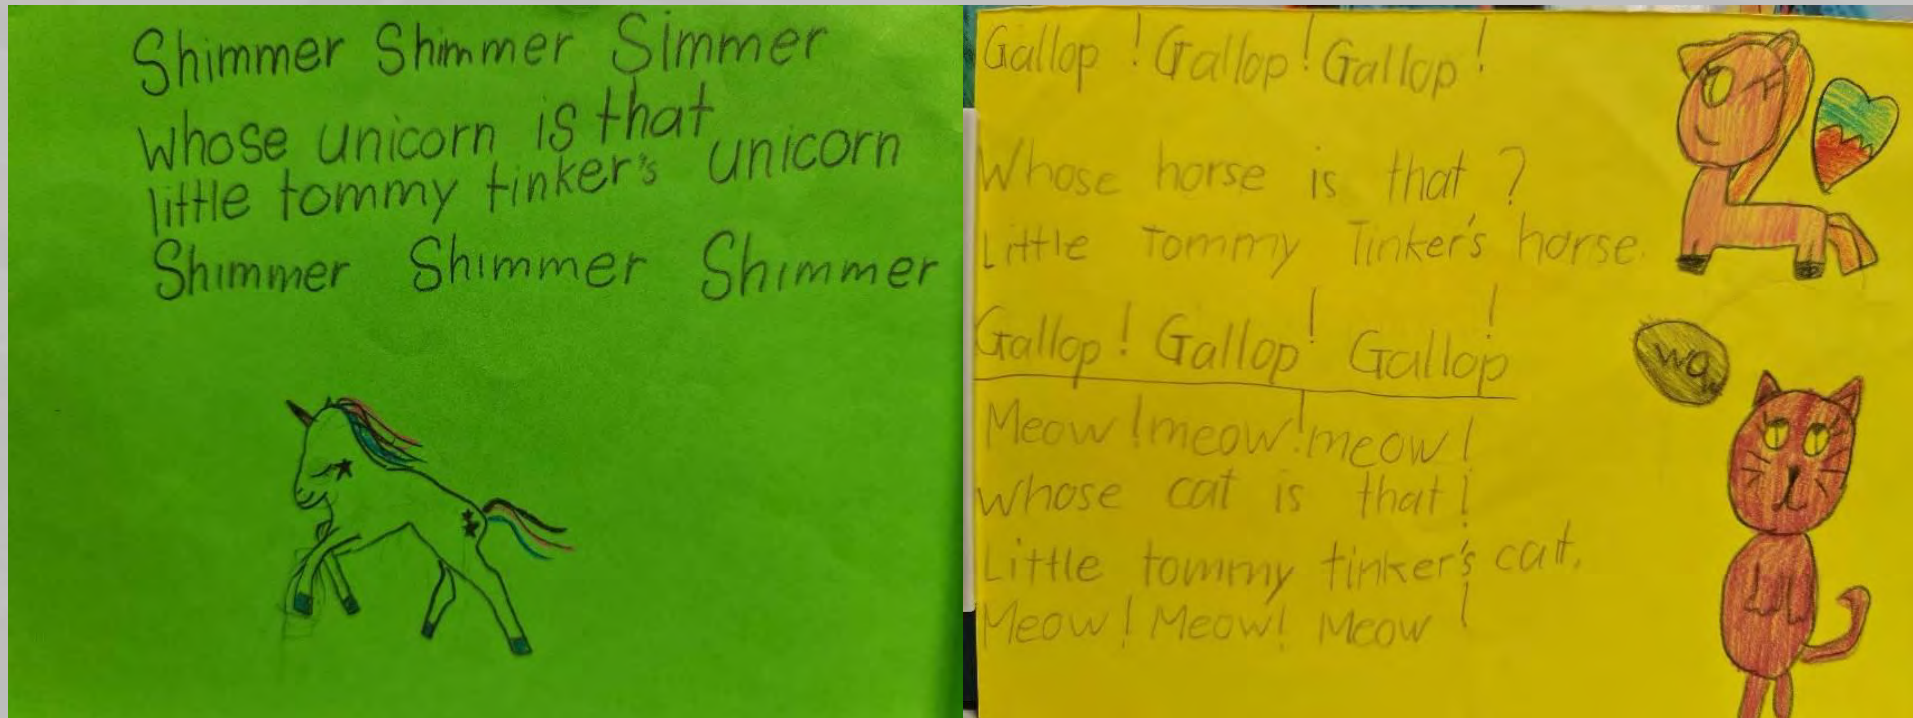 Shimmer Shimmer Simmer
whose unicorn is that
little tommy tinker's unicorn
Shimmer Shimmer Shimmer
Gallop ! Gallop ! Gallop !
Whose horse is that ?
Little Tommy Tinker's horse.
Gallop ! Gallop ! Gallop !
Meow ! meow ! meow !
whose cat is that !
Little tommy tinker's cat.
Meow ! Meow ! Meow !